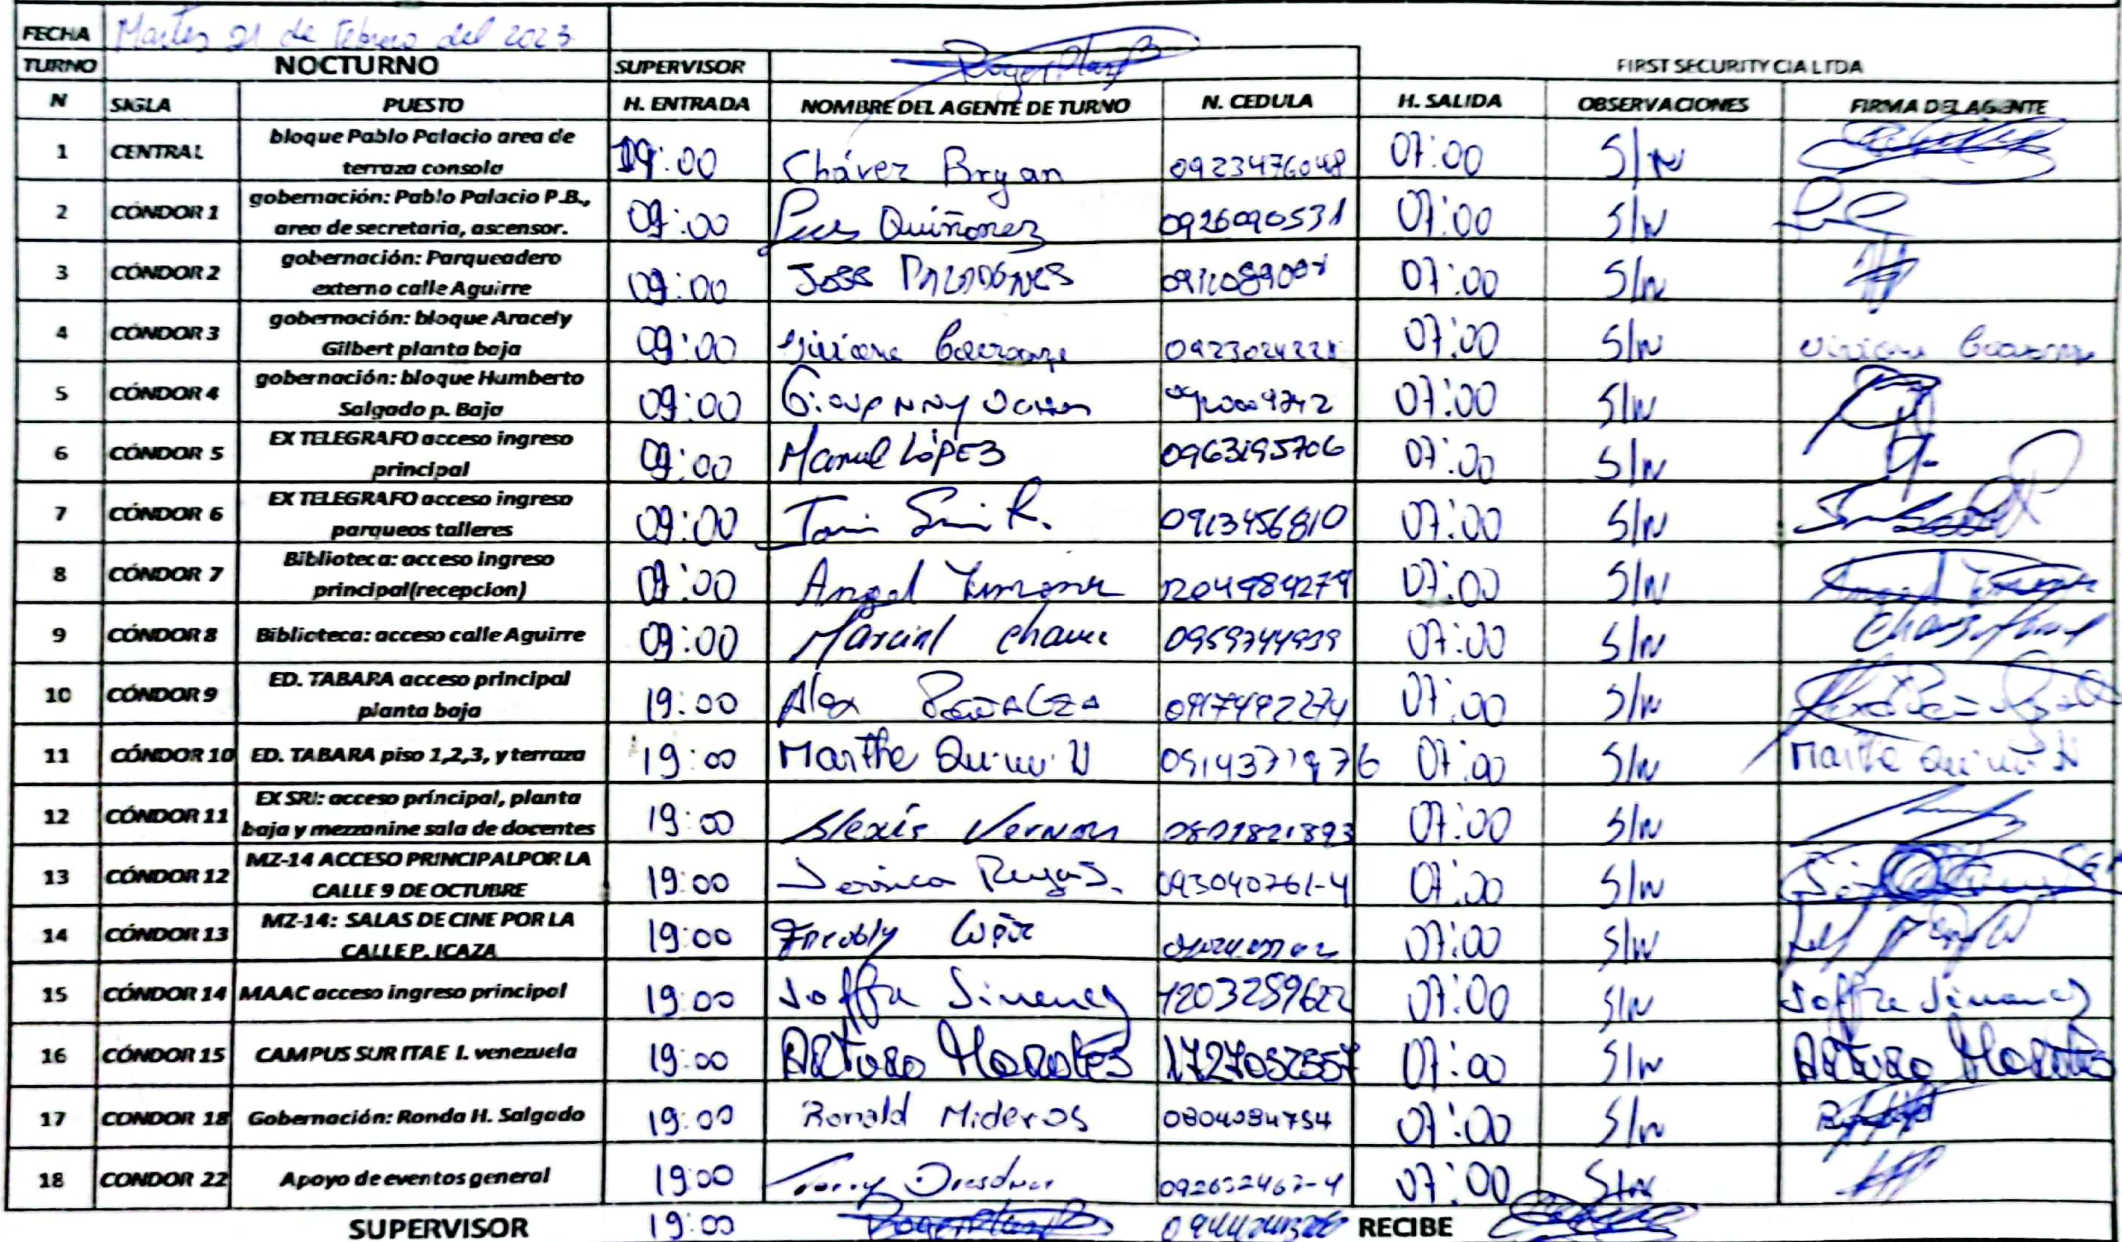 FECHA Martes 21 de Febrero del 2023
TURNO NOCTURNO SUPERVISOR FIRST SECURITY CIA LTDA
N SIGLA PUESTO H. ENTRADA NOMBRE DEL AGENTE DE TURNO N. CEDULA H. SALIDA OBSERVACIONES FIRMA DEL AGENTE
1 CENTRAL bloque Pablo Palacio area de terraza consola 19:00 Chávez Bryan 0923476048 07:00 S/N
2 CÓNDOR 1 gobernación: Pablo Palacio P.B., area de secretaria, ascensor. 09:00 Quiñonez 0926090531 07:00 S/N
3 CÓNDOR 2 gobernación: Parqueadero externo calle Aguirre 09:00 07:00 S/N
4 CÓNDOR 3 gobernación: bloque Aracely Gilbert planta baja 09:00 07:00 S/N
5 CÓNDOR 4 gobernación: bloque Humberto Salgado p. Baja 09:00 07:00 S/N
6 CÓNDOR 5 EX TELEGRAFO acceso ingreso principal 09:00 Manuel López 0963195706 07:00 S/N
7 CÓNDOR 6 EX TELEGRAFO acceso ingreso parqueos talleres 09:00 0913456810 07:00 S/N
8 CÓNDOR 7 Biblioteca: acceso ingreso principal(recepcion) 09:00 Angel 07:00 S/N
9 CÓNDOR 8 Biblioteca: acceso calle Aguirre 09:00 Marcial 0959744939 07:00 S/N
10 CÓNDOR 9 ED. TABARA acceso principal planta baja 19:00 Alex 0917492274 07:00 S/N
11 CÓNDOR 10 ED. TABARA piso 1,2,3, y terraza 19:00 Marthe 0914371976 07:00 S/N Marthe
12 CÓNDOR 11 EX SRI: acceso principal, planta baja y mezzanine sala de docentes 19:00 Alexis 0801821893 07:00 S/N
13 CÓNDOR 12 MZ-14 ACCESO PRINCIPALPOR LA CALLE 9 DE OCTUBRE 19:00 093040761-4 07:00 S/N
14 CÓNDOR 13 MZ-14: SALAS DE CINE POR LA CALLE P. ICAZA 19:00 07:00 S/N
15 CÓNDOR 14 MAAC acceso ingreso principal 19:00 Joffre Jimenez 1203289622 07:00 S/N Joffre Jimenez
16 CÓNDOR 15 CAMPUS SUR ITAE I. venezuela 19:00 Arturo Morales 1727052557 07:00 S/N Arturo Morales
17 CONDOR 18 Gobernación: Ronda H. Salgado 19:00 Ronald Mideros 0804084754 07:00 S/N
18 CONDOR 22 Apoyo de eventos general 19:00 092632467-4 07:00 S/N
SUPERVISOR 19:00 RECIBE